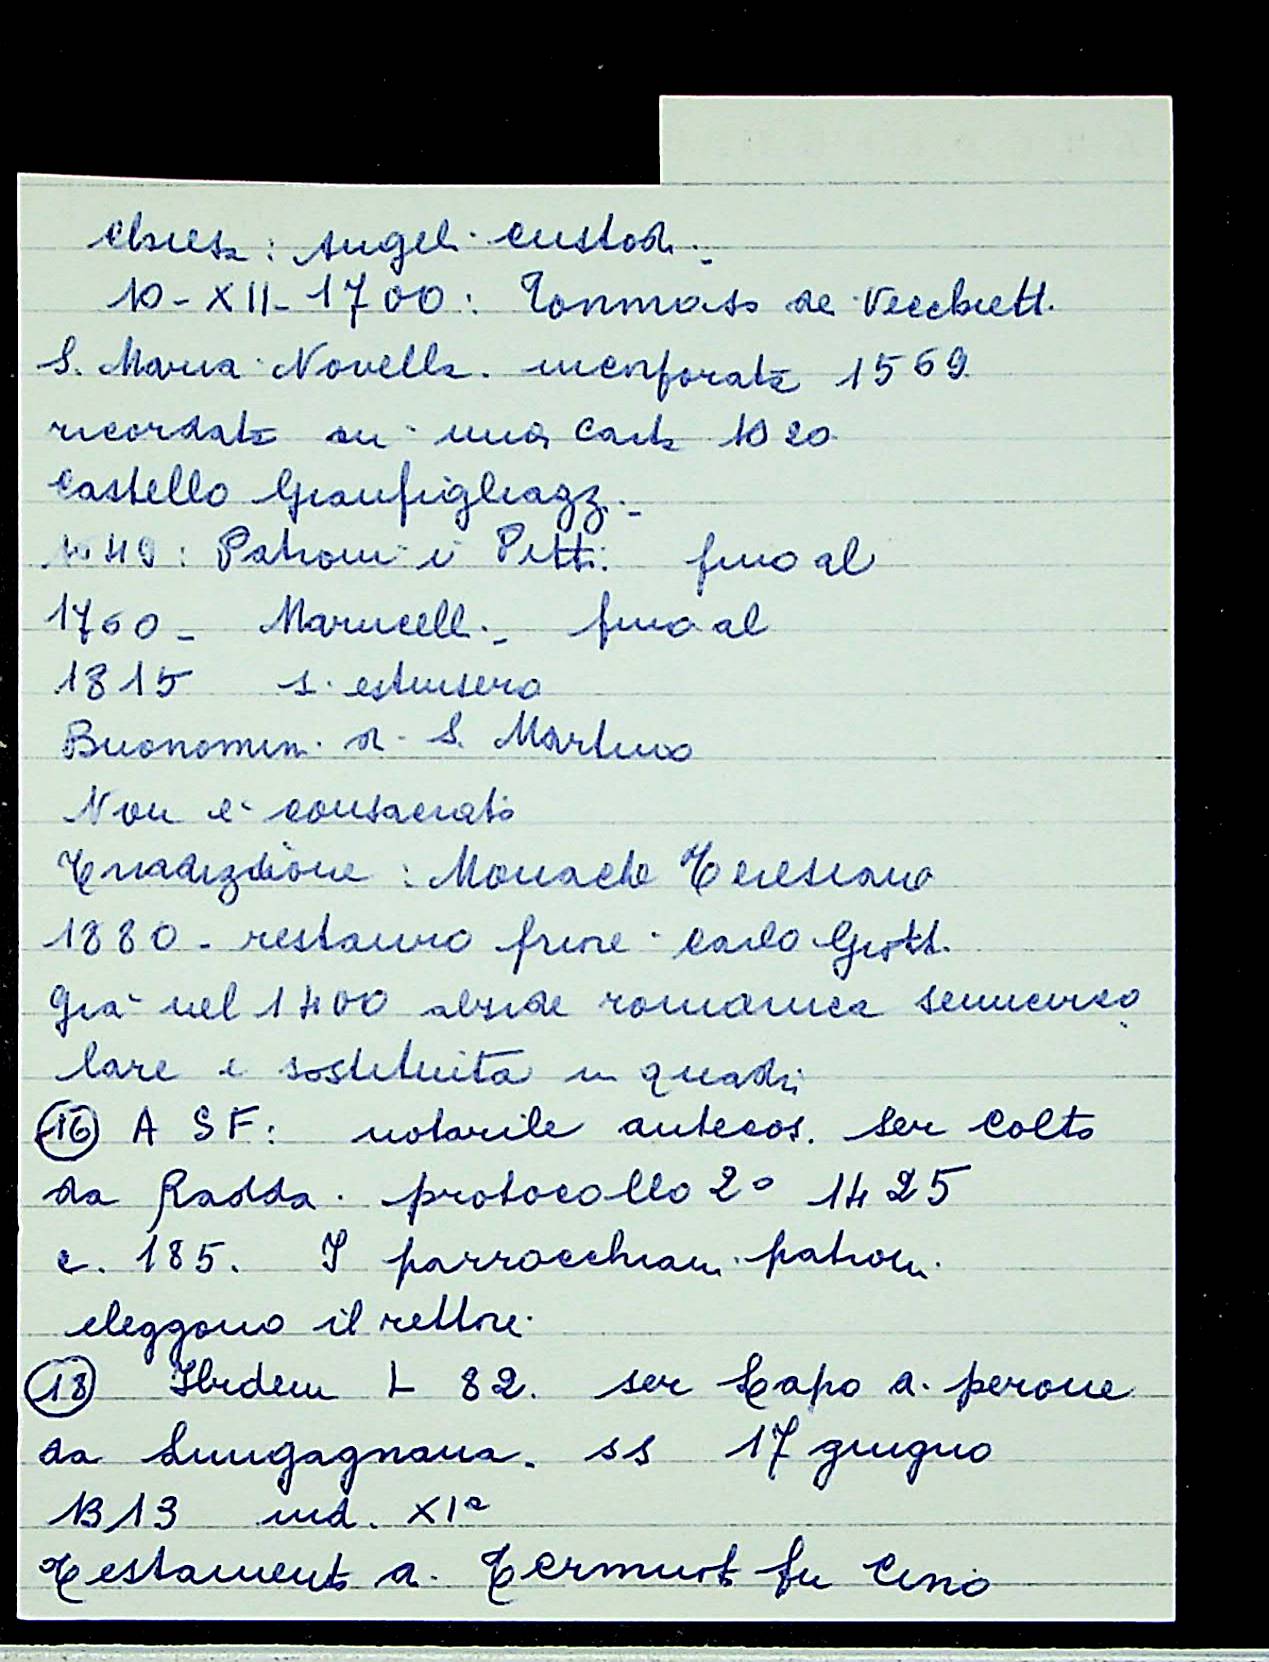 Chiesa: Angeli Custodi.
10-XII-1700: Tommaso de Vecchietti.
S. Maria Novella. incorporata 1569
ricordata in una carta 1020
Castello Gianfigliazzi.
1049: Patroni i Pitti. fino al
1760 - Marucelli. fino al
1815 si estinsero
Buonomini di S. Martino
Non è consacrato
Tradizione: Monache Teresiane
1880 - restauro priore Carlo Giotti.
Già nel 1400 abside romanica semicirco
lare è sostituita in quadri
16 A S F: notarile antecos. Ser Colto
da Radda. protocollo 2° 1425
c. 185. I parrocchiani patroni
eleggono il rettore.
18 Ibidem L 82. ser Lapo di perone
da Lungagnana. ss 17 giugno
1313 ind. XIª
Testamento di fu Cino